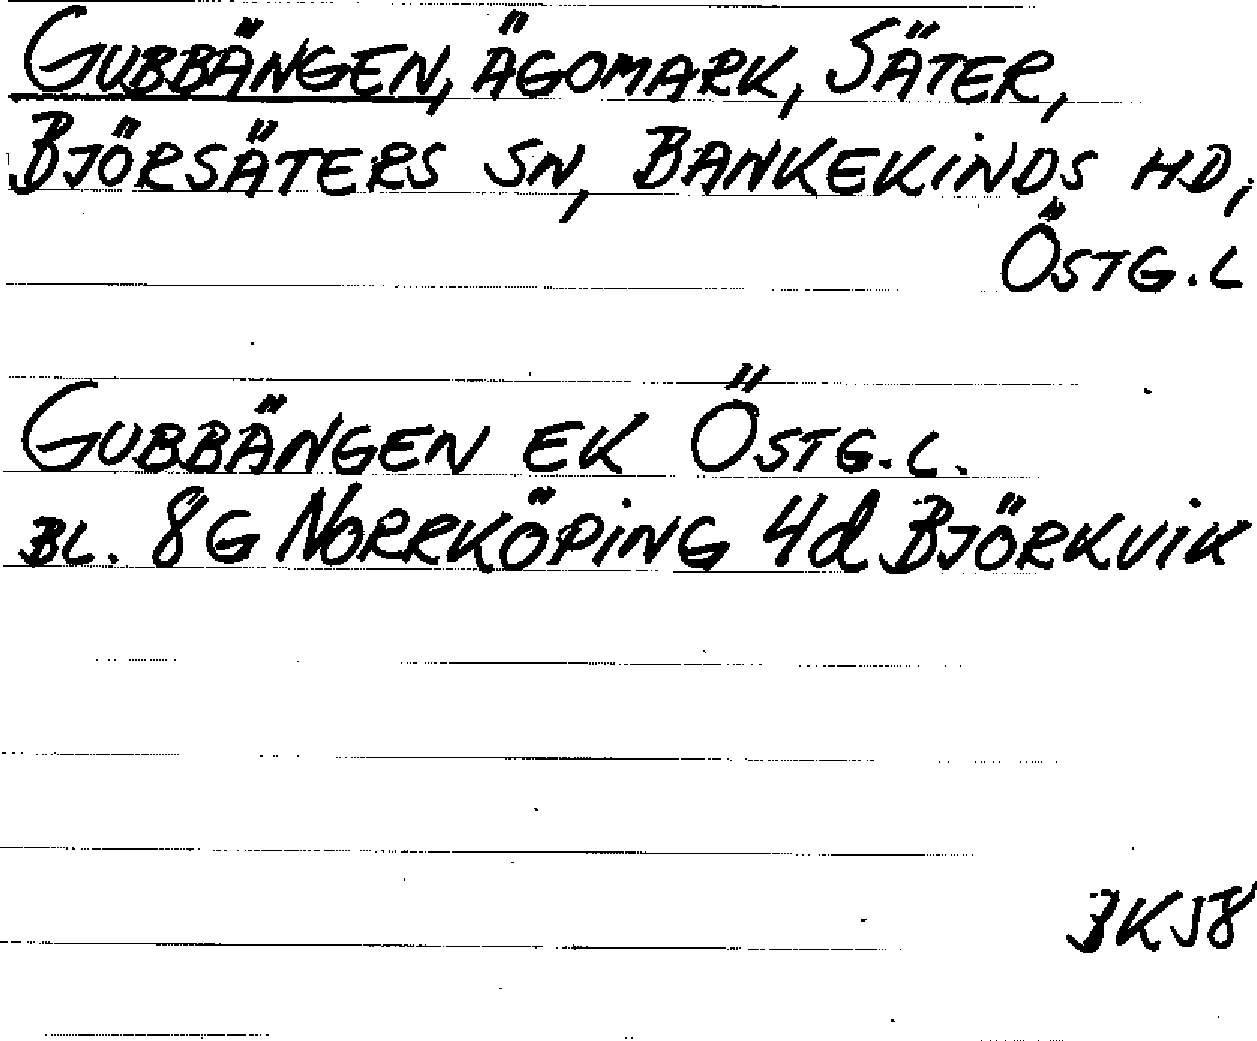 GUBBÄNGEN, ÄGOMARK, SÄTER,
BJÖRSÄTERS SN, BANKEKINDS HD,
ÖSTG.L
GUBBÄNGEN EK ÖSTG.L.
BL. 8G NORRKÖPING 4d BJÖRKVIK